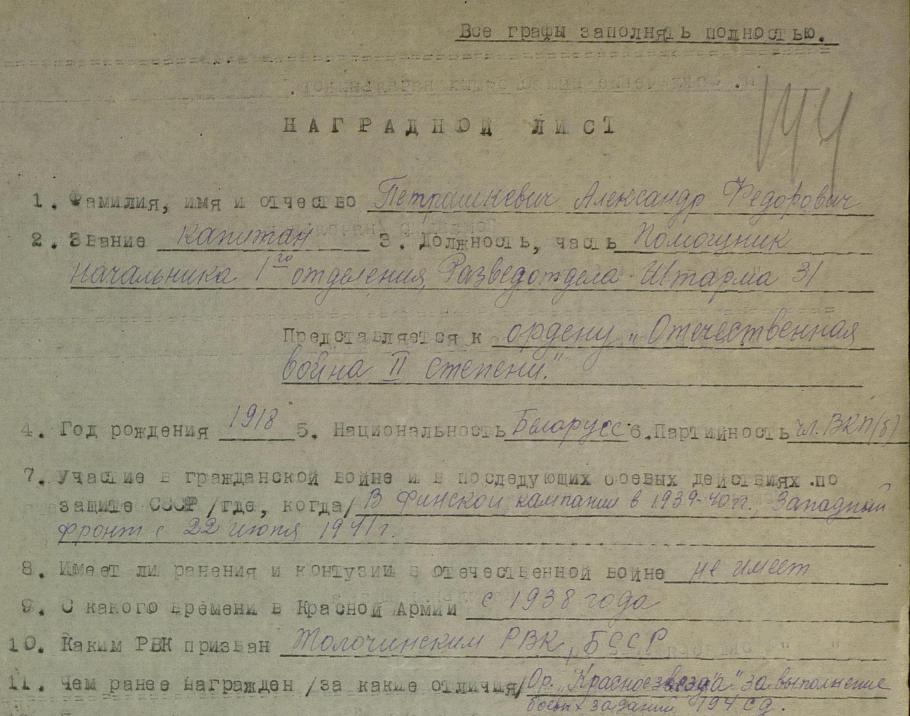 Все графы заполнять полностью.
144
НАГРАДНОЙ ЛИСТ
1. Фамилия, имя и отчество Петрашкевич Александр Федорович
2. Звание капитан 3. Должность, часть Помощник
начальника 1го отделения, Разведотдела Штарма 31
Представляется к ордену „Отечественная
война II степени."
4. Год рождения 1918 5. Национальность Белорусс 6. Партийность чл. ВКП(б)
7. Участие в гражданской войне и в последующих боевых действиях по
защите СССР /где, когда/ В финской кампании в 1939-40гг. Западный
фронт с 22 июня 1941г.
8. Имеет ли ранения и контузии в отечественной войне не имеет
9. С какого времени в Красной Армии с 1938 года
10. Каким РВК призван Толочинским РВК, БССР
11. Чем ранее награжден /за какие отличия/ Ор. "Красное звезда" за выполнение
боевых задании 194 сд.